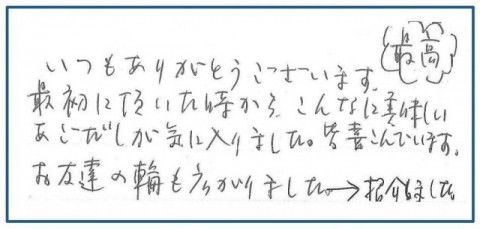 最高
いつもありがとうございます。
最初に頂いた時から、こんなに美味しい
あごだしが気に入りました。皆喜こんでいます。
お友達の輪も広がりました。→紹介しました